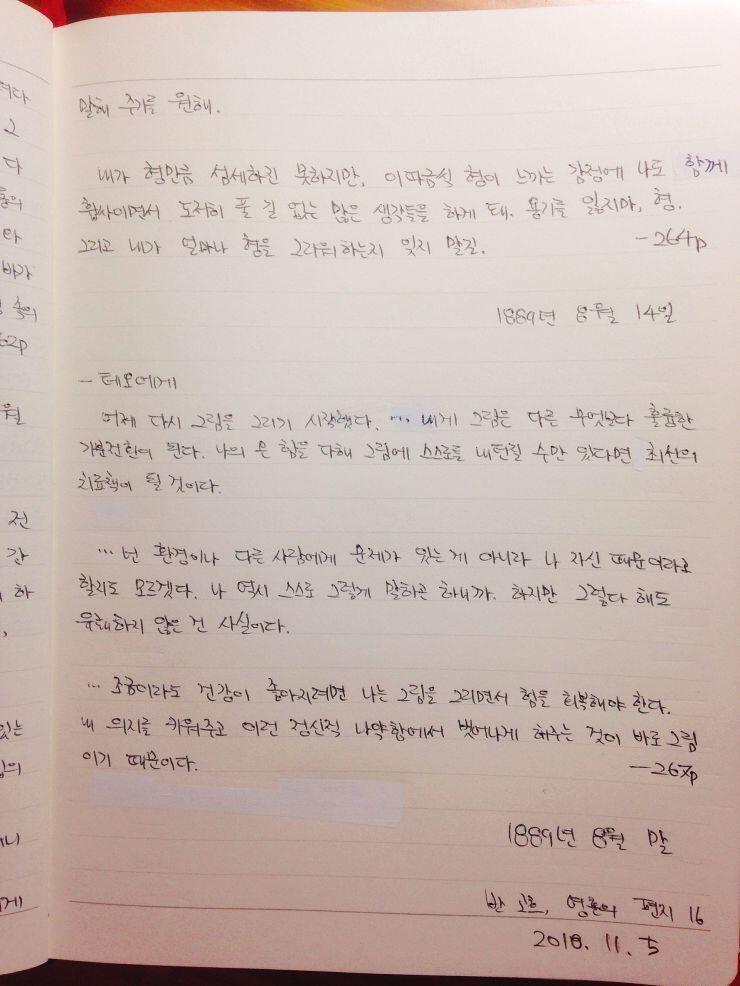 여다
2
다
통의
라
바가
속의
62p
월
전
간
하
,
있는
의
니
에게
말해 주기를 원해.
내가 형만큼 섬세하진 못하지만, 이따금식 형이 느끼는 감정에 나도 함께
휩싸이면서 도저히 풀 길 없는 많은 생각들을 하게 돼. 용기를 잃지마, 형.
그리고 내가 얼마나 형을 그리워하는지 잊지 말길. - 264p
1889년 8월 14일
- 테오에게
어제 다시 그림을 그리기 시작했다. ... 내게 그림은 다른 무엇보다 훌륭한
기분전환이 된다. 나의 온 힘을 다해 그림에 스스로를 내던질 수만 있다면 최선의
치료책이 될 것이다.
... 넌 환경이나 다른 사람에게 문제가 있는 게 아니라 나 자신 때문이라고
할지도 모르겠다. 나 역시 스스로 그렇게 말하곤 하니까. 하지만 그렇다 해도
유쾌하지 않은 건 사실이다.
... 조금이라도 건강이 좋아지려면 나는 그림을 그리면서 힘을 회복해야 한다.
내 의지를 키워주고 이런 정신적 나약함에서 벗어나게 해주는 것이 바로 그림
이기 때문이다. - 267p
1889년 8월 말
반 고흐, 영혼의 편지 16
2018. 11. 5